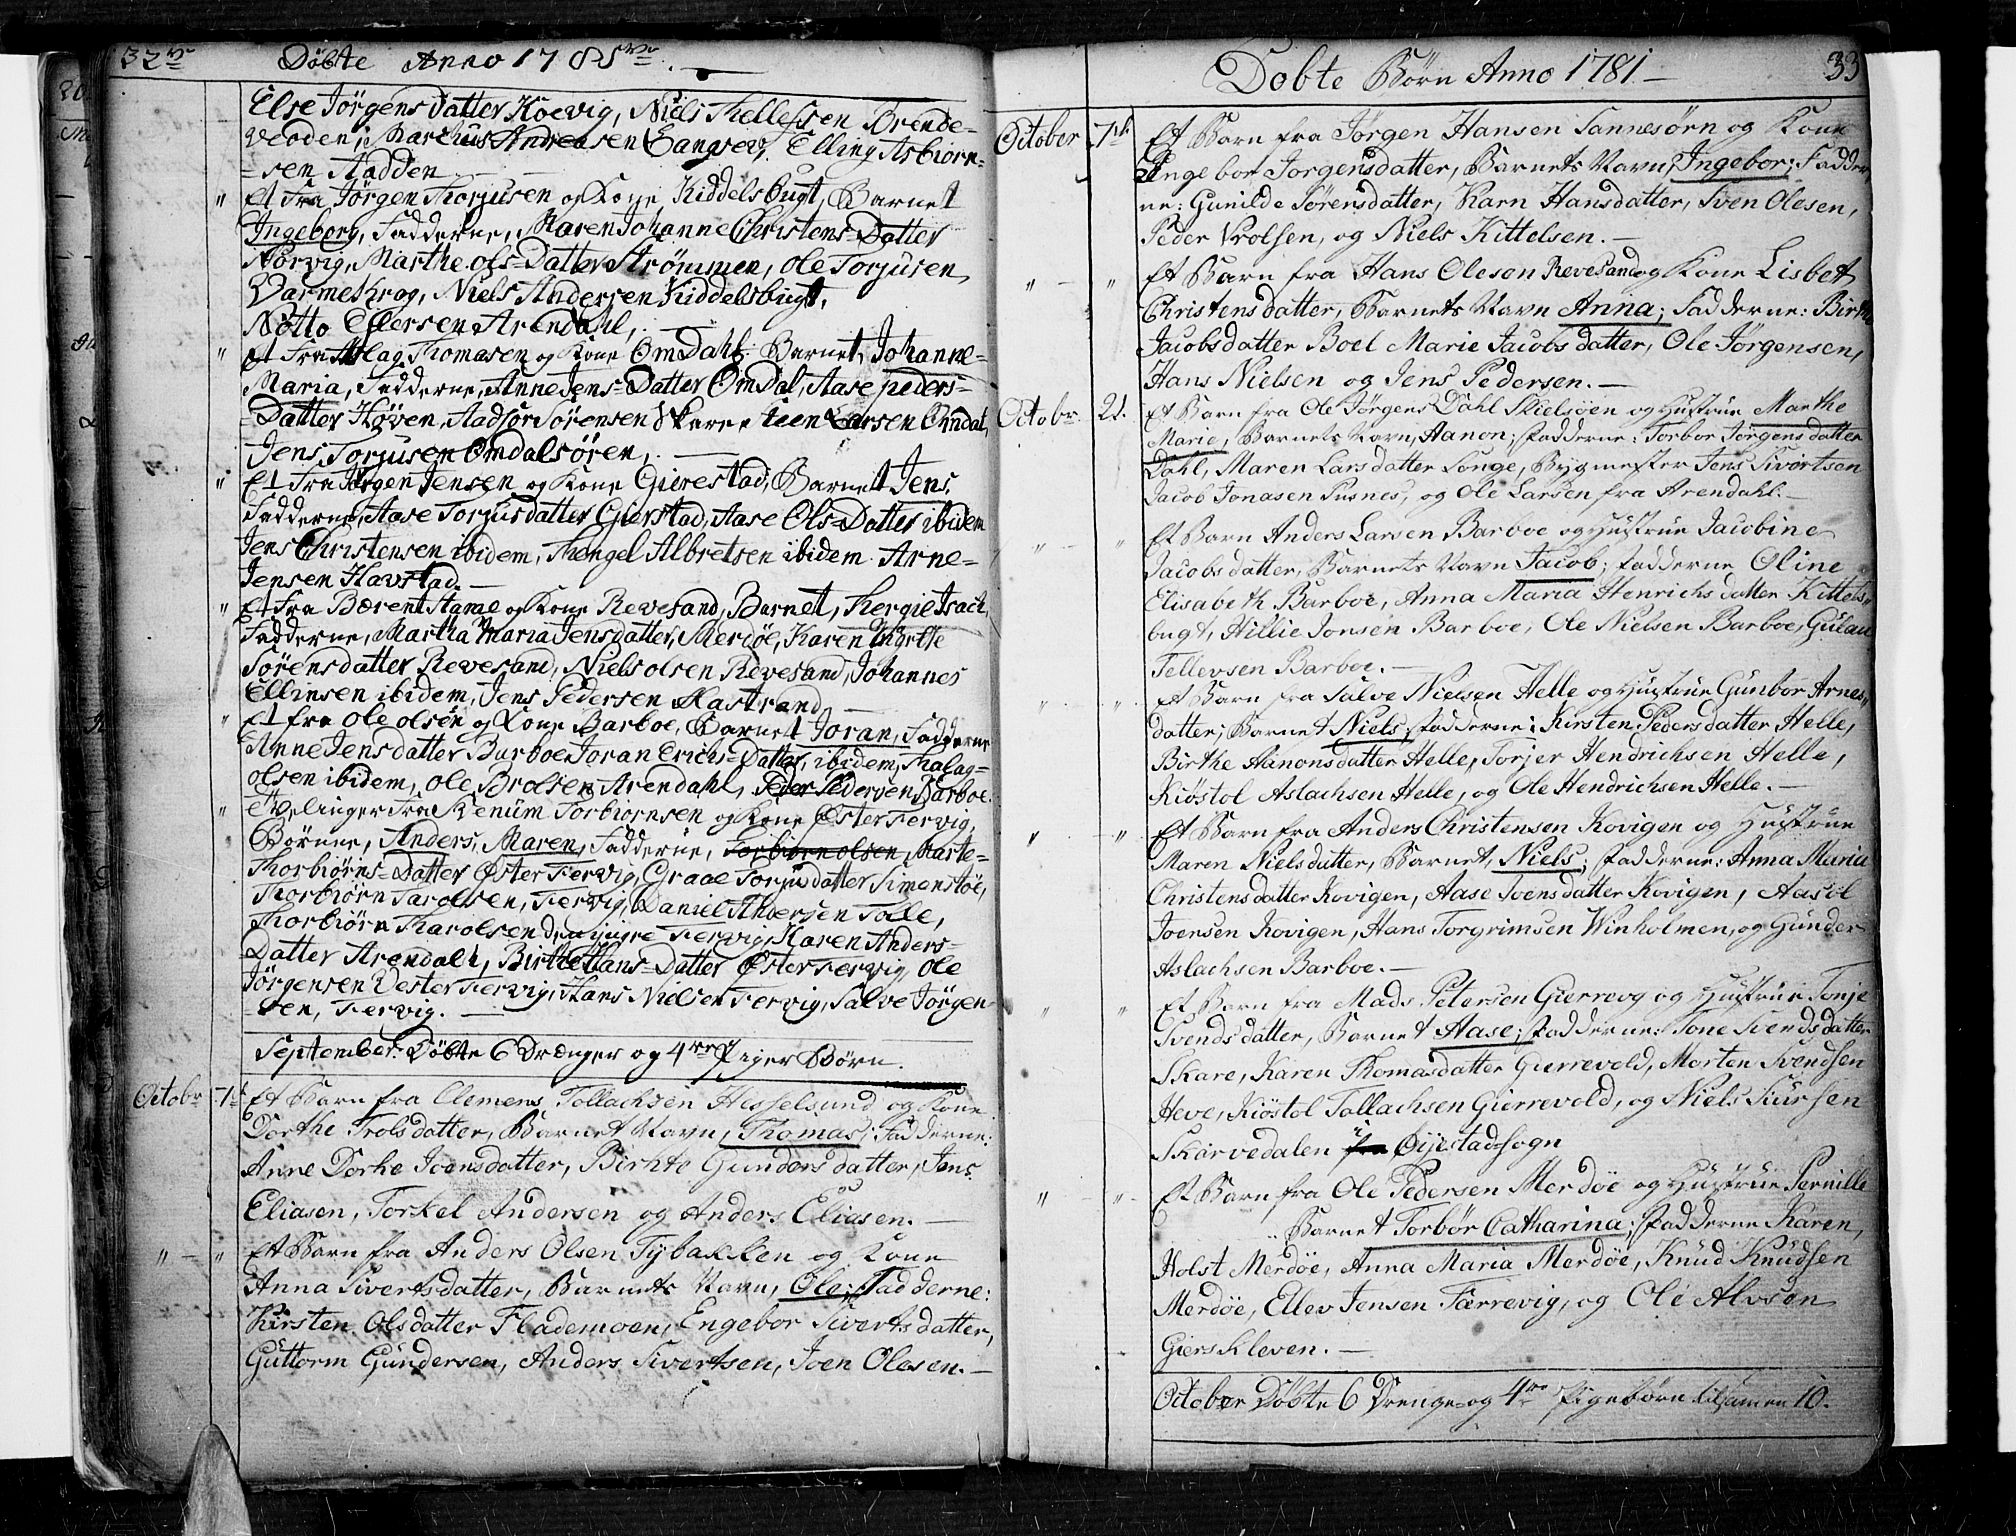 32
Döbte Anno 1781
Else Jörgens Datter Koevig, Niels Thellefsen Brende-
Vedden, Marchus Andreasen Langsev, Elling Asbiörn-
=sen Aadden
" Et Fra Jörgen Thorjusen og Kone Kiddelsbugt, Barnet
Ingeborg, Fadderne, Maren Johanne Christens=Datter
Norvig, Marthe Ols=Datter Strömmen, Ole Torjusen
Varmekrog, Niels Andersen Kiddelsbugt,
Notto Ellersen Arendahl,
" Et Fra Aslag Thomasen og Kone Omdahl. Barnet, Johanne-
Maria, Fadderne, Anne Jens=Datter Omdal, Aase peders=
=Datter Höven, Aadsör Sörensen Skare Larsen Omdal,
Jens Torjusen Omdalsören,
" Et Fra Jörgen Jensen og Kone Gierestad, Barnet Jens,
Fadderne, Aase Torjusdatter Gierstad, Aase Ols=Datter ibidem
Jens Christensen ibidem, Thengel Albretsen ibidem. Arne=
Jensen Havstad.
" Et Fra Bærent Aamae og Kone Revesand, Barnet, Thergie Isach,
Fadderne, Martha Maria Jensdatter, Merdöe, Karen Myrthe
Sörensdatter Revesand, Niels olsen Revesand, Johannes
Ellinsen ibidem, Jens Pedersen Hastrand
" Et fra Ole olsen og Kone Barboe, Barnet Joran, Fadderne
Anne Jensdatter Barboe Joran Erichs=Datter, ibidem, Thalag-
olsen ibidem, Ole Brolsen Arendahl, Peder Pedersen Barboe.
" Tvelinger Fra Kenum Torbiörnsen og Kone Öster Fervig,
Börnne, Anders, Maren, Fadderne, Torbiörn olsen, Marte=
Thorbiörns=Datter Öster Fervig, Graae Torjusdatter Simenstöe,
Thorbiörn Tarolsen, Fervig, Daniel Andersen Tolle,
Thorbiörn Tharolsen den yngre Fervig, Karen Anders=
Datter Arendahl, Birthe Hans=Datter Öster Fervig, Ole
Jörgensen Vester Fervig, Hans Nielsen Fervig, Salve Jörgen
sen, Fervig.
September: Döbte 6 Drænger og 4re Piger Börn.
Octobr 7de Et Barn fra Clemens Tollachsen Hesselsund og Kone
Dorthe Trolsdatter, Barnet Navn, Thomas; Fadderne:
Anne Dorke Joensdatter, Birhte Gundersdatter, Jens
Eliasen, Torkel Andersen og Anders Eliasen.
" - " Et Barn fra Anders Olsen Tybakken og Kone
Anna Sivertsdatter, Barnets Navn, Ole; Fadderne:
Kirsten Olsdatter Flademoen, Engebor Sivertsdatter,
Guttorm Gundersen, Anders Sivertsen, Joen Olesen.
Dobte Börn Anno 1781 33
October 7de Et Barn fra Jörgen Hansen Sannesörn og Kone
Ingebor Jorgensdatter, Barnets Navn, Ingebor; Fadder
ne: Gunilde Sörensdatter, Karn Hansdatter, Sven Olesen,
Peder Vrolsen, og Niels Kittelsen.
" - " Et Barn fra Hans Olesen Revesand og Kone Lisbet
Christensdatter, Barnets Navn Anna; Fadderne: Birthe
Jacobsdatter Boel Marie Jacobsdatter, Ole Jörgensen,
Hans Nielsen og Jens Pedersen.
Octobr 21. Et Barn fra Ole Jörgens Dahl Skielsöen og Hustrue Marthe
Marie, Barnets Navn, Aanon; Fadderne: Torbor Jörgensdatter
Dahl, Maren Larsdatter Songe, Bygmester Jens Sivortsen
Jacob Jonasen Pusnes, og Ole Larsen fra Arendahl.
" - " Et Barn Anders Larsen Barboe og Hustrue Jacobine
Jacobsdatter, Barnets Navn Jacob; Fadderne Oline
Elisabeth Barboe, Anna Maria Henrichsdatter Kittels-
bugt, Hillie Jonsen Barboe, Ole Nielsen Barboe, Gulau
Tellevsen Barboe.
" " Et Barn fra Salve Nielsen Helle og Hustrue Gunbor Arnes-
datter; Barnet Niels; Fadderne: Kirsten Pedersdatter Helle,
Birthe Aanonsdatter Helle, Torjer Hendrichsen Helle,
Kiöstol Aslachsen Helle, og Ole Hendrichsen Helle.
" - " Et Barn fra Anders Christensen Kovigen og Hustrue
Maren Nielsdatter, Barnet, Niels; Fadderne: Anna Maria
Christensdatter Kovigen, Aase Svensdatter Kovigen, Aasol
Joersen Kovigen, Hans Torgrimsen Winholmen, og Gunder
Aslachsen Barboe.
" " Et Barn fra Mads Petersen Gierrevg og Hustrue Tonje
Svendsdatter, Barnet Aase; Fadderne: Tone Svendsdatter
Skare, Karen Thomasdatter Gierrevold, Morten Svendsen
Heve, Kiöstol Tollachsen Gierrevold, og Niels Siursen
Skarvedalen i Öijestad sogn
" - " Et Barn fra Ole Pedersen Merdöe og Hustrue Pernille
" Barnet Torbör Catharina; Fadderne Karen,
Holst Merdöe, Anna Maria Merdöe, Knud Knudsen
Merdöe, Ellev Jensen Færrevig, og Ole Alvsen
Giersklev­en.
October Döbte 6 Drenge og 4re Pigebörn tilsamen 10.